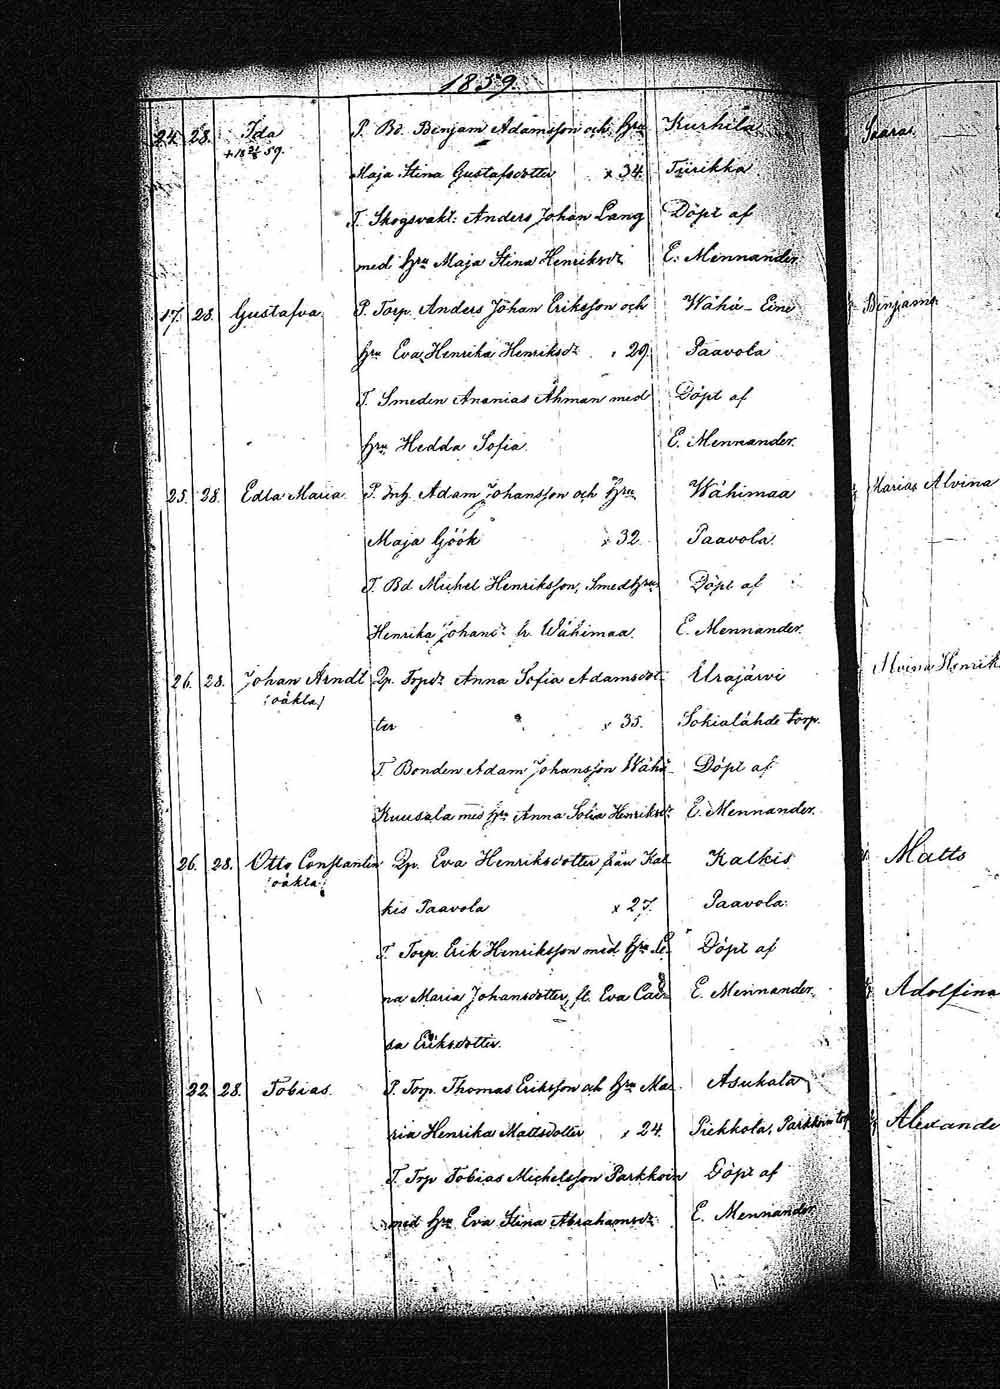 1859.
24. 28. Ida P. Bd. Benjam Adamsson och hru Kurhila
+ 18 59. Maja Stina Gustafsdotter x 34. Tiirikka
T. Skogsvakt: Anders Johan Lang Döpt af
med hru Maja Stina Henriksdr E. Mennander.
17. 28. Gustafva P. Torp. Anders Johan Eriksson och Wähä-Eine
hru Eva Henrika Henriksdr 29 Paavola
T. Smeden Ananias Åhman med Döpt af
hru Hedda Sofia. E. Mennander.
25. 28. Edla Maria. P. Inh. Adam Johansson och hru Wähimaa
Maja Göök x 32. Paavola.
T. Bd Michel Henriksson, Smedhru Döpt af
Henrika Johansdr fr. Wähimaa. E. Mennander.
26. 28. Johan Arndt Qp. Torpdr Anna Sofia Adamsdot- Urajärvi
(oäkta) ter x 35. Sokialähde torp.
T. Bonden Adam Johansson Wähä- Döpt af
Kuusala med hru Anna Sofia Henriksdr E. Mennander.
26. 28. Otto Constantin Qp. Eva Henriksdotter från Kal- Kalkis
(oäkta) kis Paavola x 27. Paavola.
T. Torp. Erik Henriksson med hru Le- Döpt af
na Maria Johansdotter, fl. Eva Cai- E. Mennander.
sa Eriksdotter.
22. 28. Tobias. P. Torp. Thomas Eriksson och hru Ma- Asukala
ria Henrika Mattsdotter x 24. Piekkola, Parkkoin torp
T. Trp Tobias Michelsson Parkkoin Döpt af
med hru Eva Stina Abrahamsdr E. Mennander
Saara
Benjamin
Maria Alvina
Alvina Henrik
Matts
Adolfina
Alexande